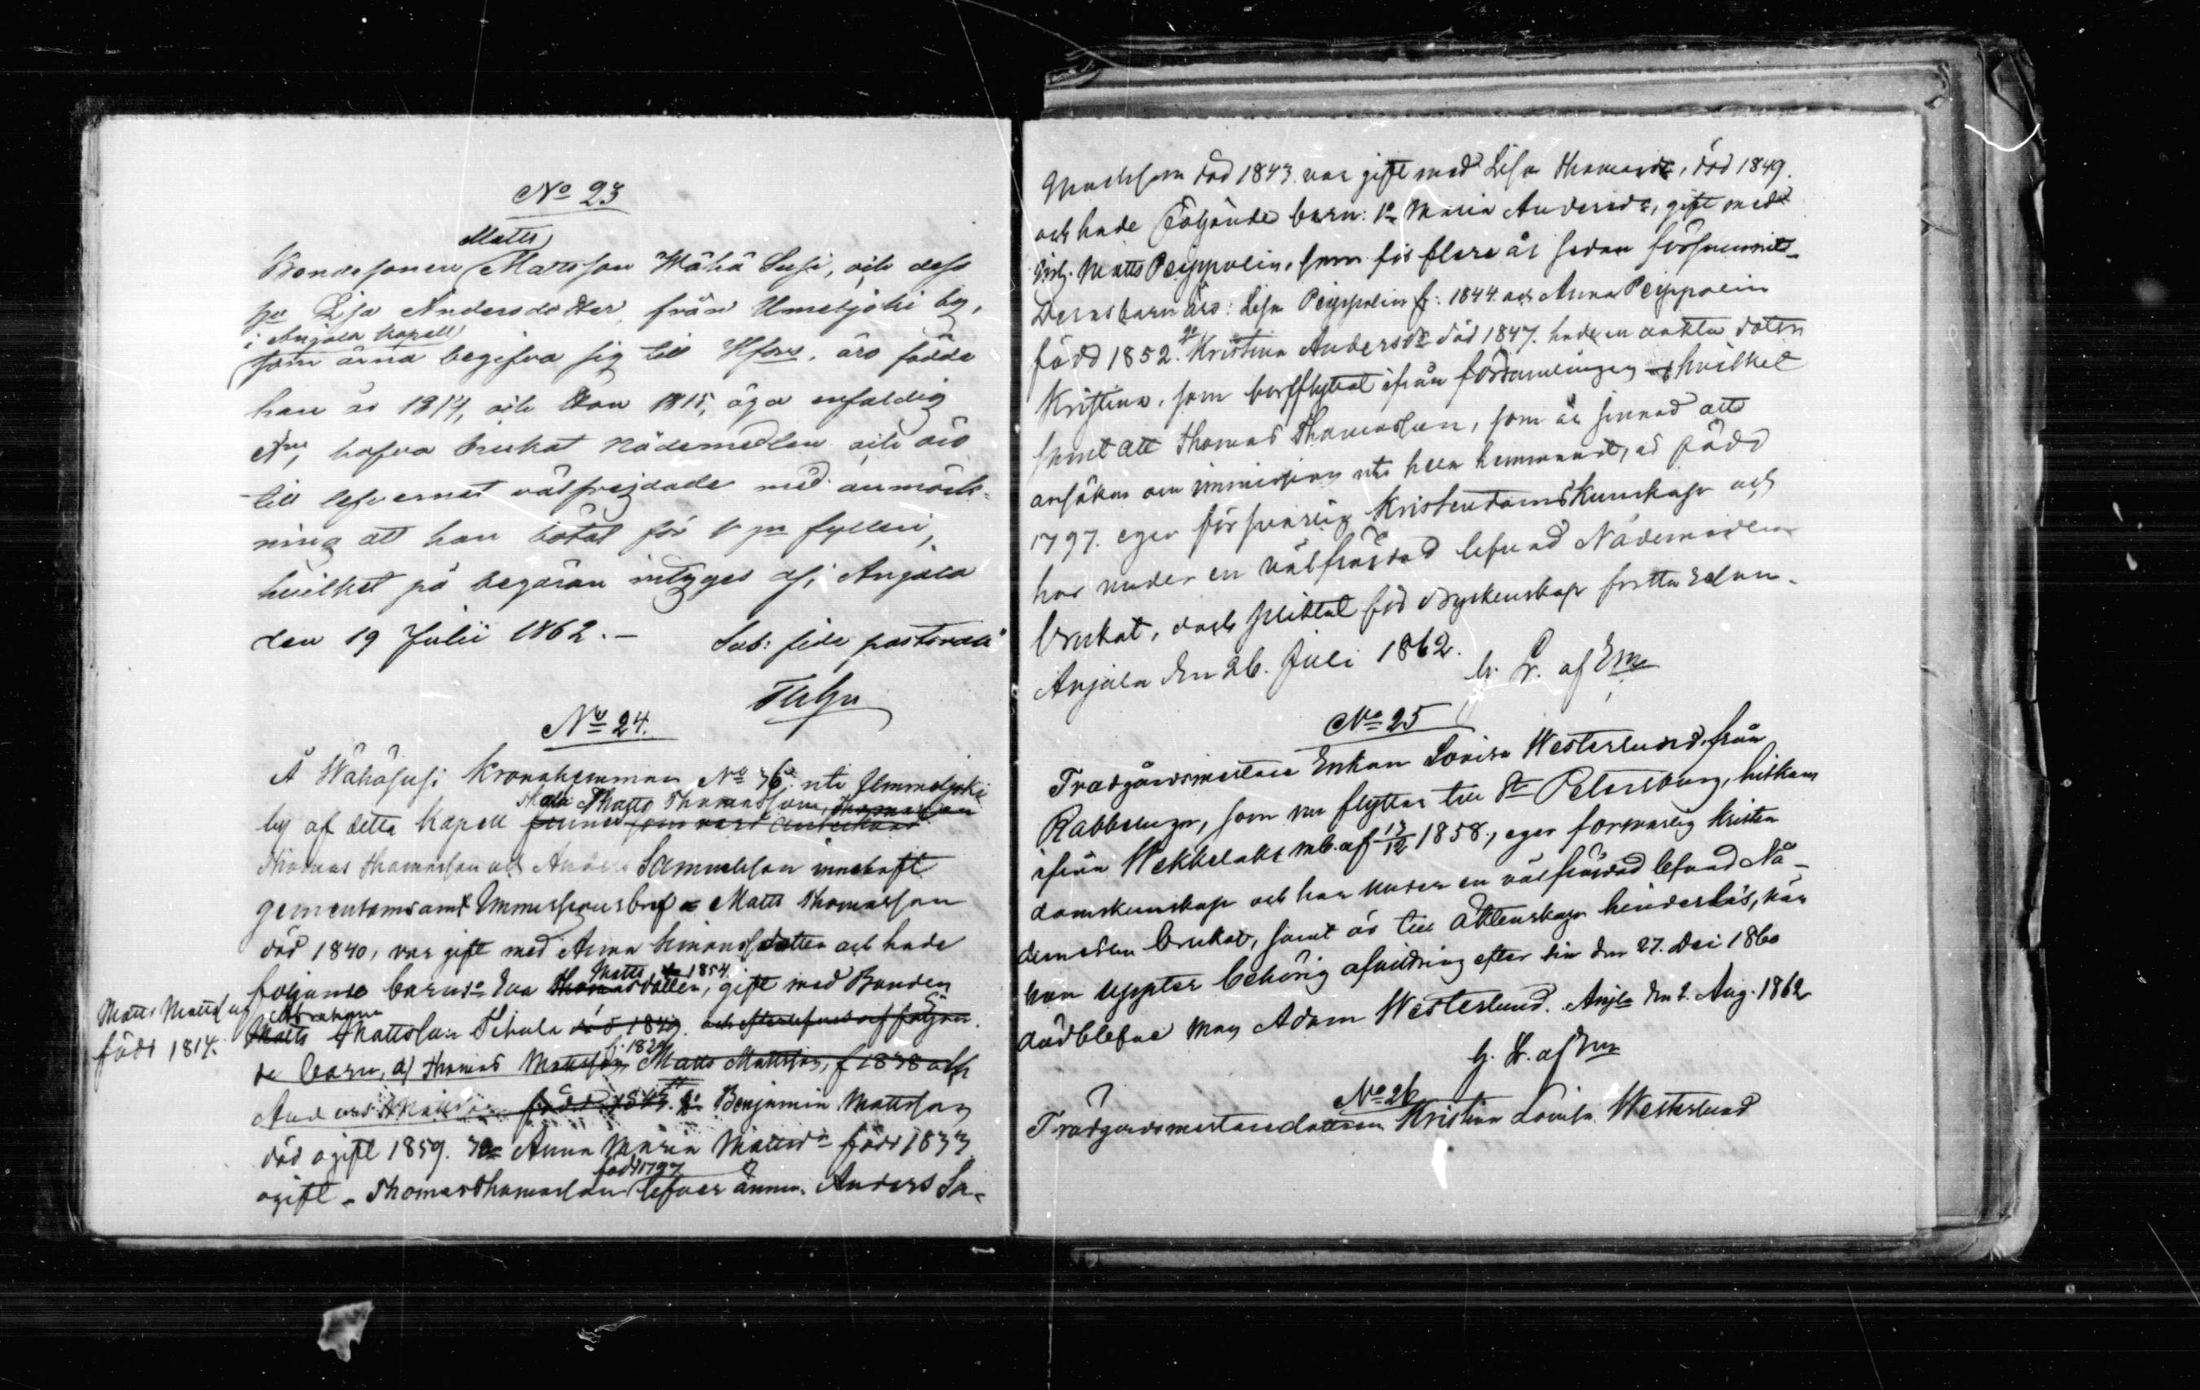 No 23
Matts
Bondesonen Mattsson Wähä Susi, och dess
hu Lisa Andersdotter från Umeljoki by,
i Anjala kapell
som ärna begifva sig till Hfors, äro födde
han år 1814, och hon 1815, äga enfaldig
hafva brukat nådemedlen och äro
till lefvernet välfrejdade med anmärk-
ning att han bötat för fylleri,
hvilket på begäran intygas af; Anjala
den 19 Julii 1862.- Sub: fide pastorali
No 24.
Å Wähäsusi Kronohemman No 36 uti Ummeljoki
Matts Thomasson, Thomasson
by af detta Kapell finnes som varit antecknad
Thomas Thomasson och Anders Samuelsson innehaft
gemensamt Immissionsbref Matts Thomasson
död 1840, var gift med Anna Simonsdotter och hade
Matts 1854
följande barn: 1o Eva Thomasdotter, gift med Bonden
Matts Mattsson
född 1814.
Abraham
Matts Mattsson Sihvola död 1849. och efterlefves af följan-
f. 1829
de barn, a) Thomas Mattsson, Matts Mattsson, f 1838 och
Anders Mattsson född 1847. 2o Benjamin Mattsson
död ogift 1859. 3o Anna Maria Mattsdr född 1833
född 1797
ogift - Thomas Thomasson lefver ännu. Anders Sa-
muelsson död 1843. var gift med Lisa Thomasdr, död 1849.
och hade följande barn: 1o Maria Andersdr, gift med
Matts Peippolin, som för flere år sedan försvunnit -
Deras barn äro: Lisa Peippolin f: 1844. och Anna Peippolin
född 1852. 2o Kristina Andersdr död 1847. hade en oäkta dotter
Kristina, som bortflyttat ifrån församlingen - hvilket
samt att Thomas Thomasson, som är sinnad att
ansöka om immission uti hela hemmanet, är född
1797. eger försvarlig Kristendomskunskap och
har under en välfräjdad lefnad Nådemedlen
brukat, dock pliktat för dryckenskap
Anjala den 26. Juli 1862.
No 25
Trädgårdsmästare Enkan Lovisa Westerlund från
Rabbelugn, som nu flyttar till St Petersburg, hitkom
ifrån Wekkelaks mb. af 13/12 1858., eger försvarlig kristen
domskunskap och har under en välfräjdad lefnad Nå-
demedlen brukat, samt är till äktenskap hinderlös, när
hon uppter behörig afvittring efter sin den 27. Dec 1860
dödblefne man Adam Westerlund. Anjla den 2. Aug. 1862
No 26
Trädgårdsmästaredottren Kristina Lovisa Westerlund